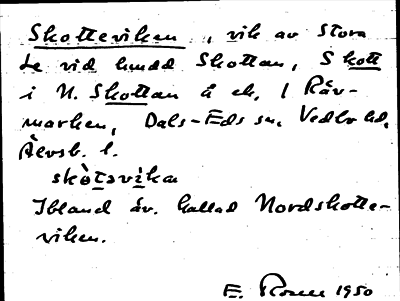 Skotteviken, vik av Stora
Le vid hmdd Skottan, Skott
i N. Skottan å ek. l Råv-
marken, Dals-Eds sn. Vedbo hd.
Älvsb. l.
skòtsvika
Ibland äv. kallad Nordskotte-
viken.
E. 1950